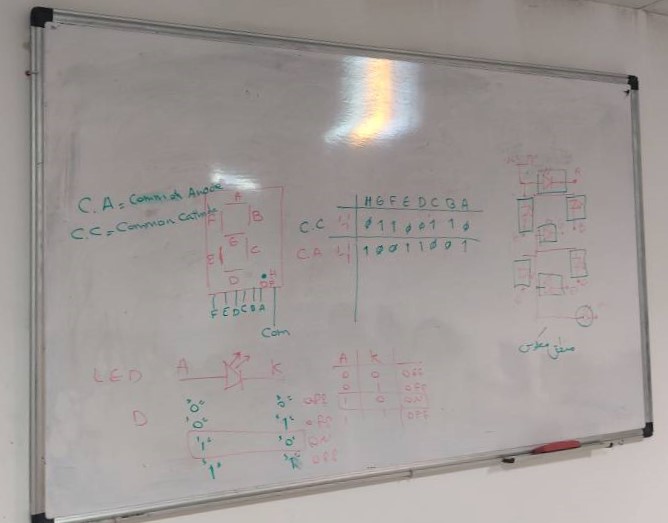 C.A = Common Anode
C.C = Common Catode
A
F B
G
E C
D
H
DP
F E D C B A
Com
H G F E D C B A
C.C 4 0 1 1 0 0 1 1 0
C.A 4 1 0 0 1 1 0 0 1
LED A K
D "0" "0" OFF
"0" "1" OFF
"1" "0" ON
"1" "1" OFF
A K
0 0 OFF
0 1 OFF
1 0 ON
1 1 OFF